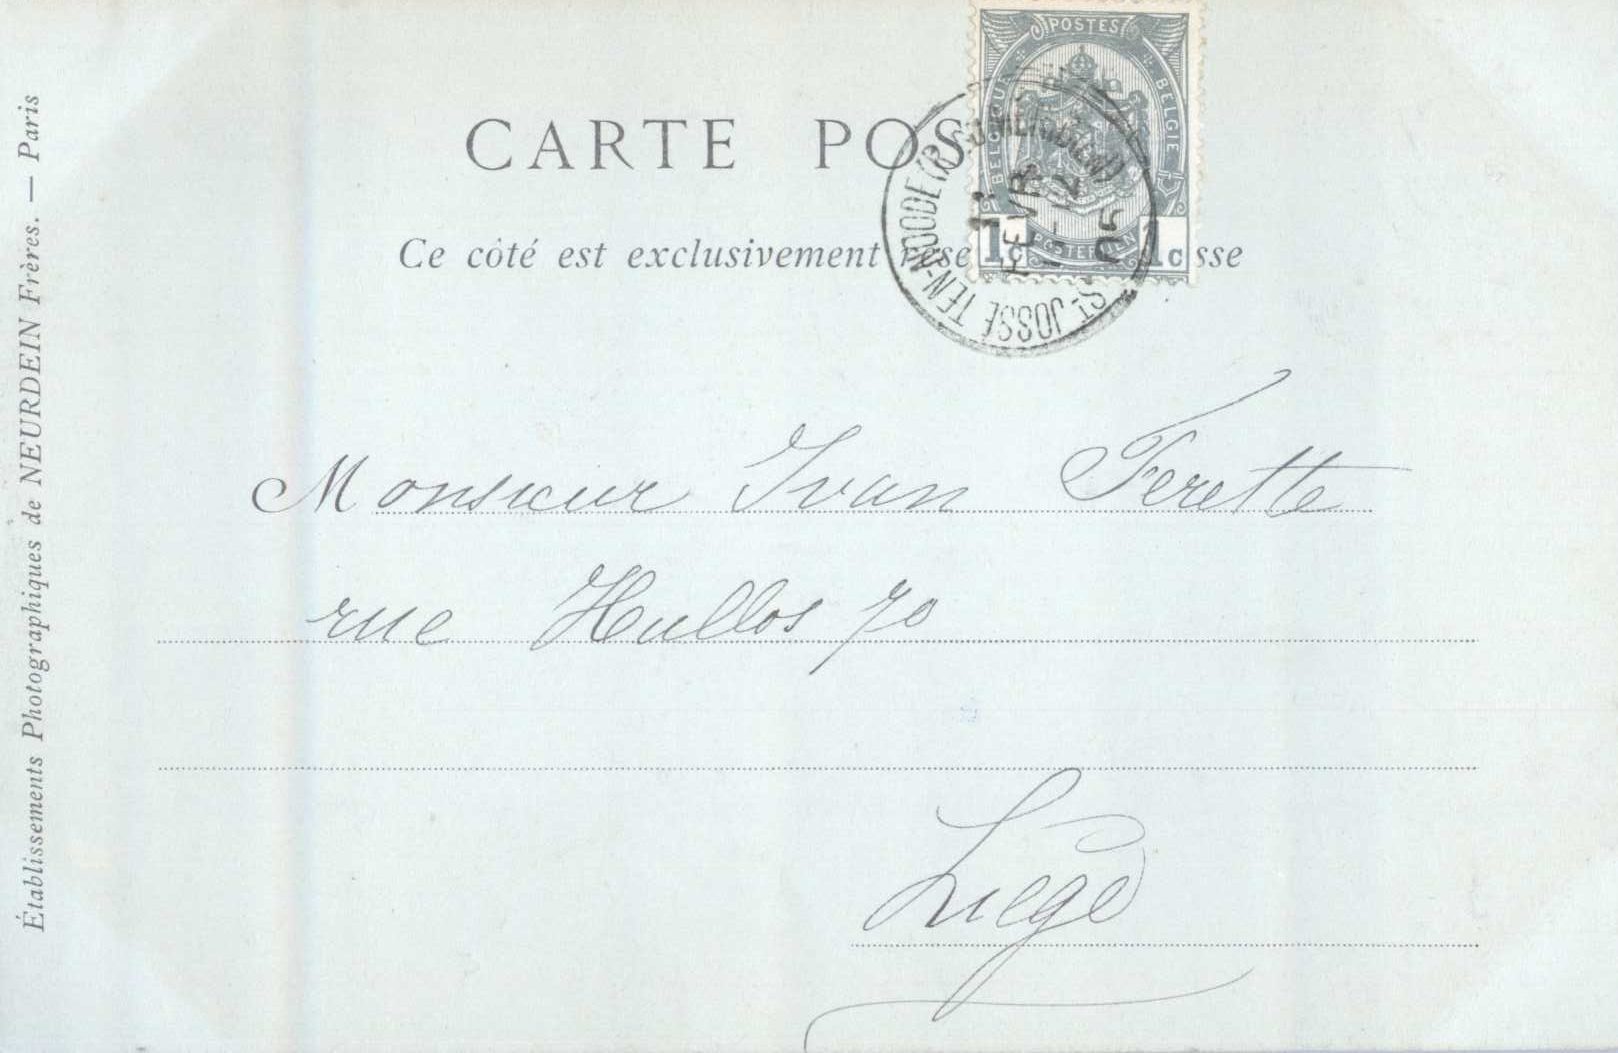 Établissements Photographiques de NEURDEIN Frères. — Paris
CARTE POS
Ce côté est exclusivement rése sse
POSTES
BELGIQUE BELGIE
POSTERIJEN
1c 1c
ST-JOSSE-TEN-NOODE
11
FEVR
12
05
Monsieur Ivan Ferette
rue Hullos 70
Liège